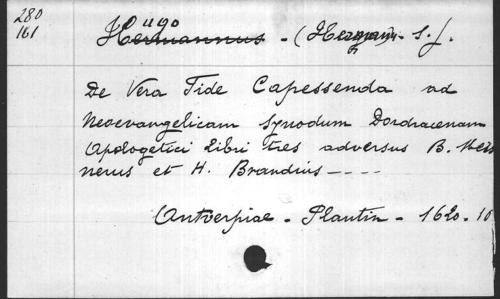 280
161
Hugo
Hermannus - (Hermann. S. J.
De Vera Fide Capessenda ad
Neoevangelicam Synodum Dordracenam
Apologetici Libri tres adversus B. Meis
nerus et H. Brandius ----
Antverpiae - Plantin - 1620 - 10